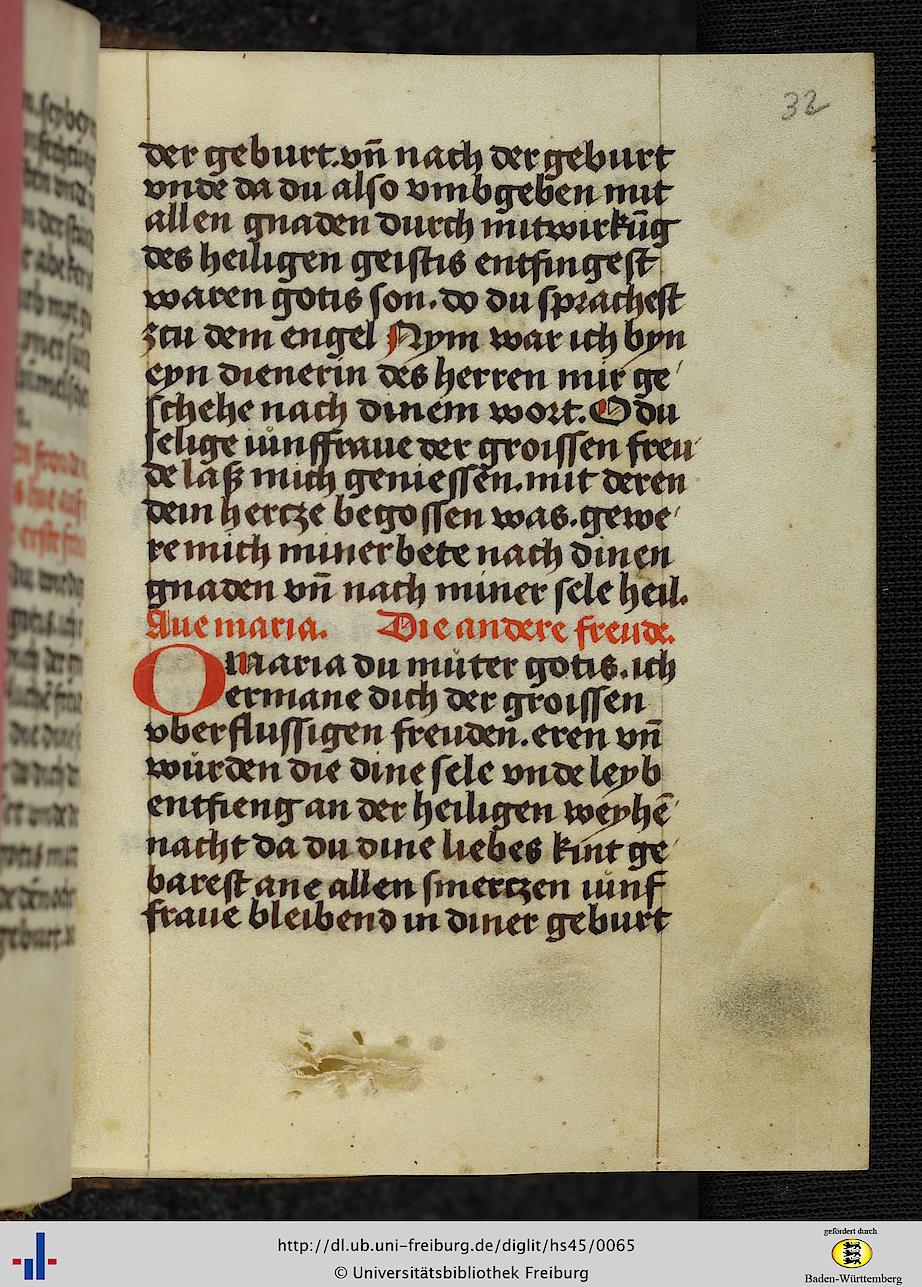 32
der geburt. vn̄ nach der geburt
vnde da du also vmbgeben mit
allen gnaden durch mitwirkūg
des heiligen geistis entfingest
waren gotis son. do du sprachest
zcu dem engel Nym war ich byn
eyn dienerin des herren mir ge
schehe nach dinem wort. O du
selige iunffraue der groissen freu
de laß mich geniessen. mit deren
dein hertze begossen was. gewe
re mich miner bete nach dinen
gnaden vn̄ nach miner sele heil.
Aue maria. Die andere freude.
O Maria du můter gotis. ich
ermane dich der groissen
vberflussigen freuden. eren vn̄
wůrden die dine sele vnde leyb
entfieng an der heiligen weyhē
nacht da du dine liebes kint ge
barest ane allen smertzen iunf
fraue bleibend in diner geburt
http://dl.ub.uni-freiburg.de/diglit/hs45/0065
© Universitätsbibliothek Freiburg
gefördert durch
Baden-Württemberg